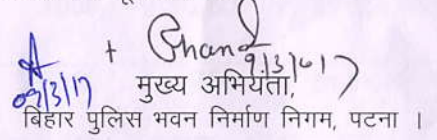 09/3/17
9/3/2017
मुख्य अभियंता,
बिहार पुलिस भवन निर्माण निगम, पटना ।